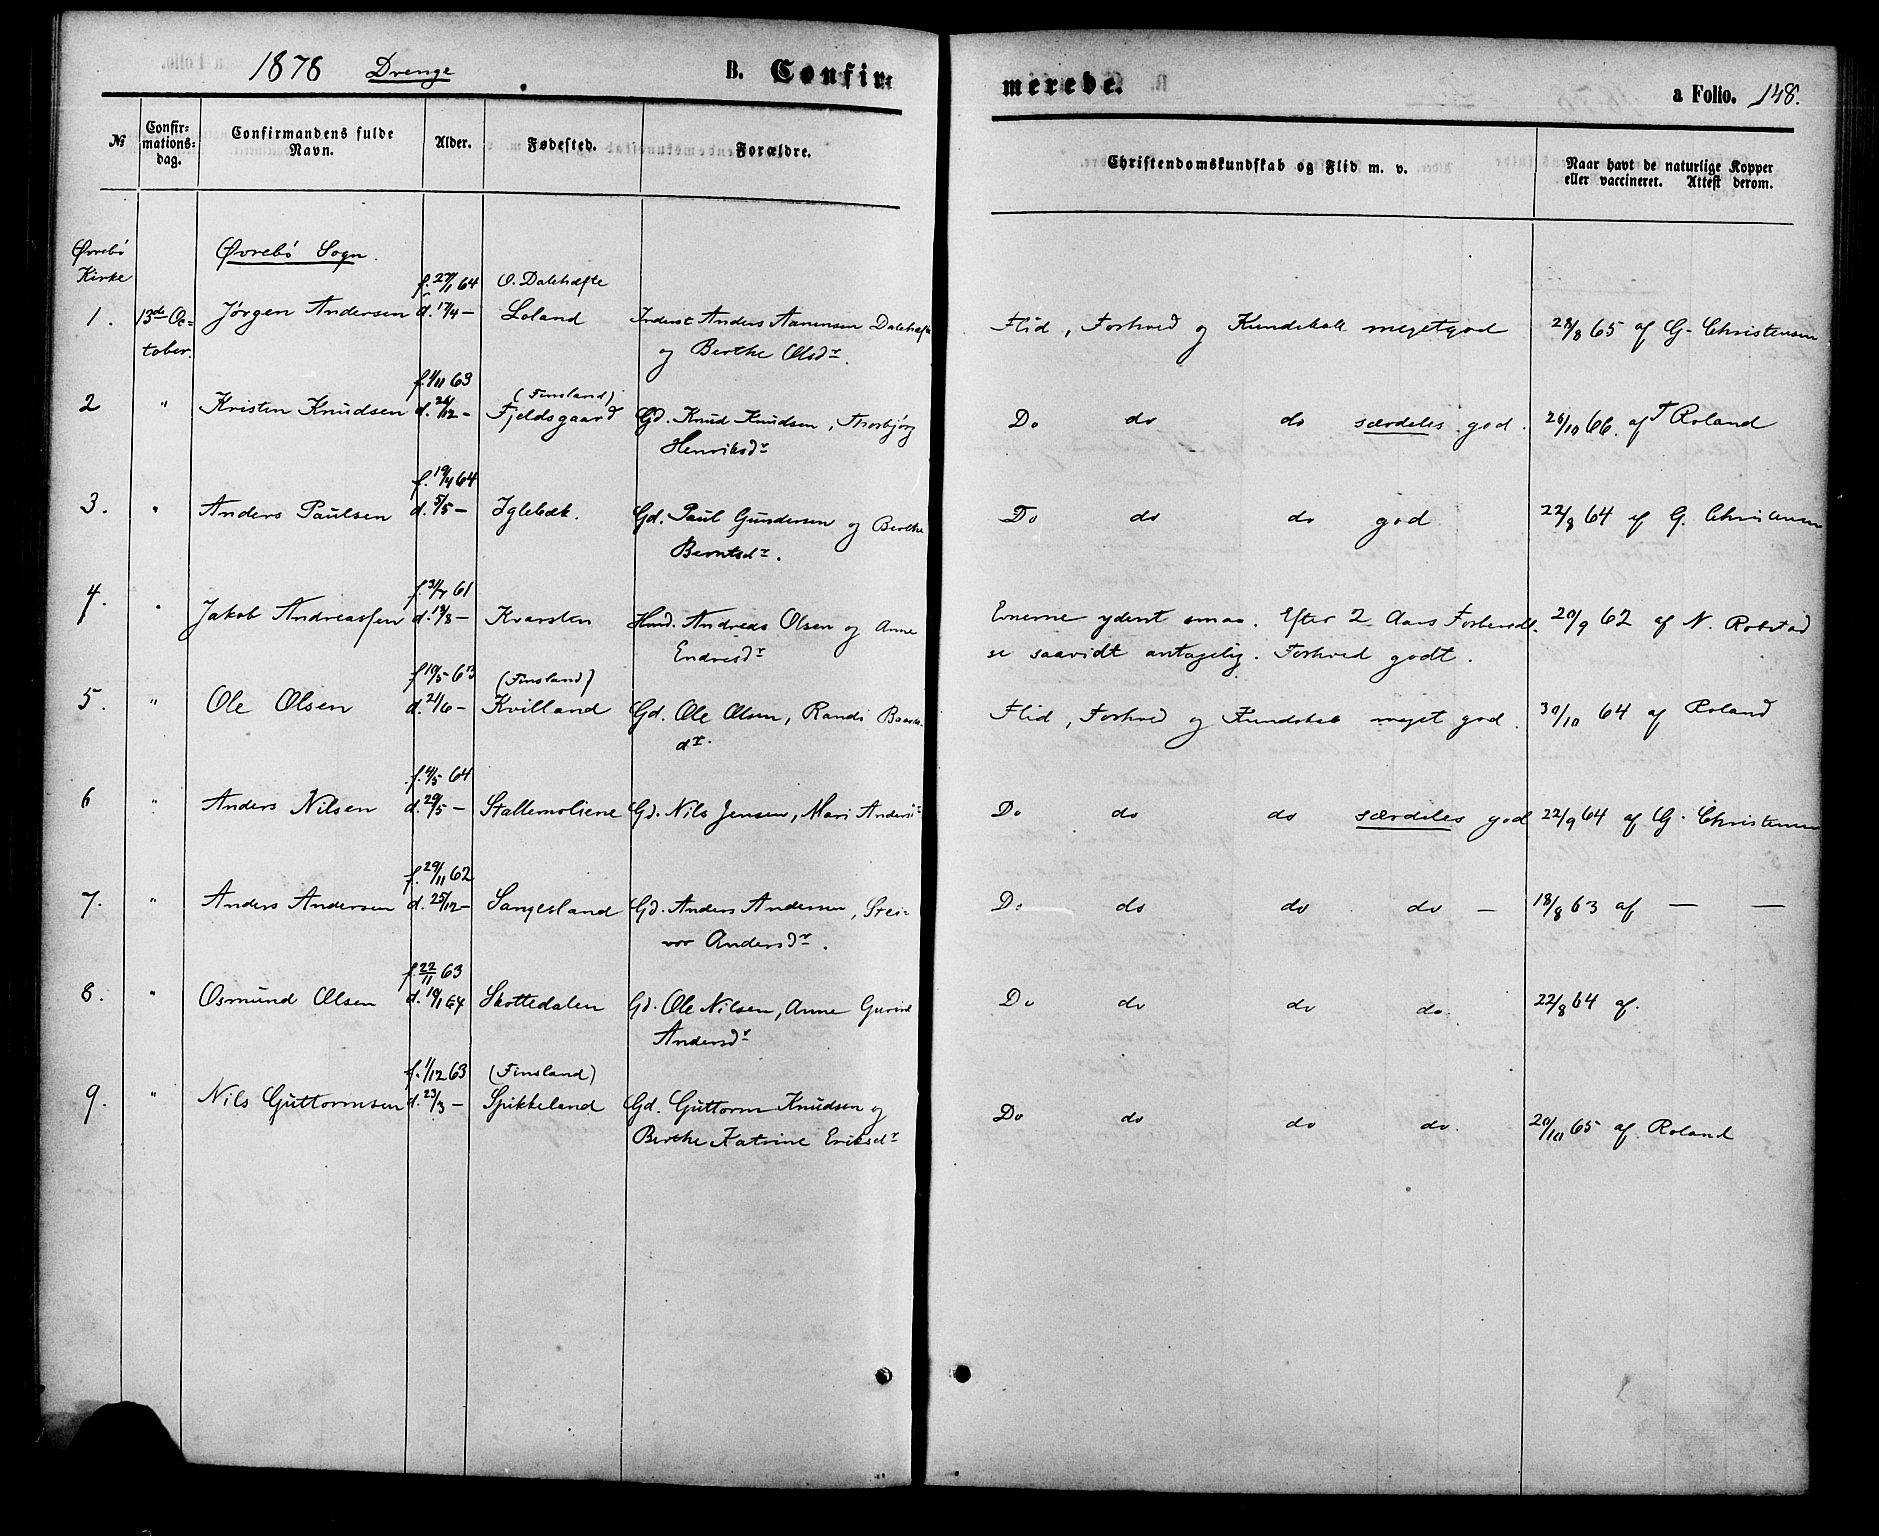 1878 Drenge B. Confir- merede. a Folio. 148.
No Confirmations-dag. Confirmandens fulde Navn. Alder. Fødested. Forældre. Christendomskundskab og Flid m. v. Naar havt de naturlige Kopper eller vaccineret. Attest derom.
Øvrebø Kirke Øvrebø Sogn.
f. 27/1 64 O. Dalehefte
1. 13de Oc- Jørgen Andersen d. 17/4 — Loland Inderst Anders Aanensen Dalehefte Flid, Forhold og Kundskab meget god 28/8 65 af G. Christensen
tober. og Berthe Olsdr.
f. 1/11 63 (Finsland)
2 " Kristen Knudsen d. 26/12 — Fjeldsgaard Gd. Knud Knudsen, Thorbjørg Do do do særdeles god. 26/10 66. af T Roland
Henriksdr
f. 19/4 64
3. " Anders Paulsen d. 5/5 — Iglebæk. Gd. Paul Gundersen og Berthe Do do do god 22/8 64 af G. Christensen
Berntsdr.
f. 31/7 61
4. " Jakob Andreassen d. 18/8 — Kvarsten Hmd. Andreas Olsen og Anne Evnerne yderst smaa. Efter 2 Aars Forberedel- 20/9 62 af N. Robstad
Endresdr se saavidt antagelig. Forhold godt.
f. 10/5 63 (Finsland)
5. " Ole Olsen d. 21/6 — Kvilland Gd. Ole Olsen, Randi Flid, Forhold og Kundskab meget god. 30/10 64 af Roland
dr.
f. 4/5 64
6 " Anders Nilsen d. 29/5 — Stallemoliene Gd. Nils Jensen, Mari Andersdr Do do do særdeles god 22/9 64 af G. Christensen
f. 29/11 62
7. " Anders Andersen d. 25/12 — Sangesland Gd. Anders Andersen, Stei- Do do do do — 18/8 63 af — —
vor Andersdr.
f. 22/11 63
8. " Osmund Olsen d. 19/1 64 Skottedalen Gd. Ole Nilsen, Anne Gurine Do do do do. 22/8 64 af.
Andersdr
f. 1/12 63 (Finsland)
9. " Nils Guttormsen d. 23/3 — Spikkeland Gd. Guttorm Knudsen og Do do do do. 20/10 65 af Roland
Berthe Katrine Eriksdr